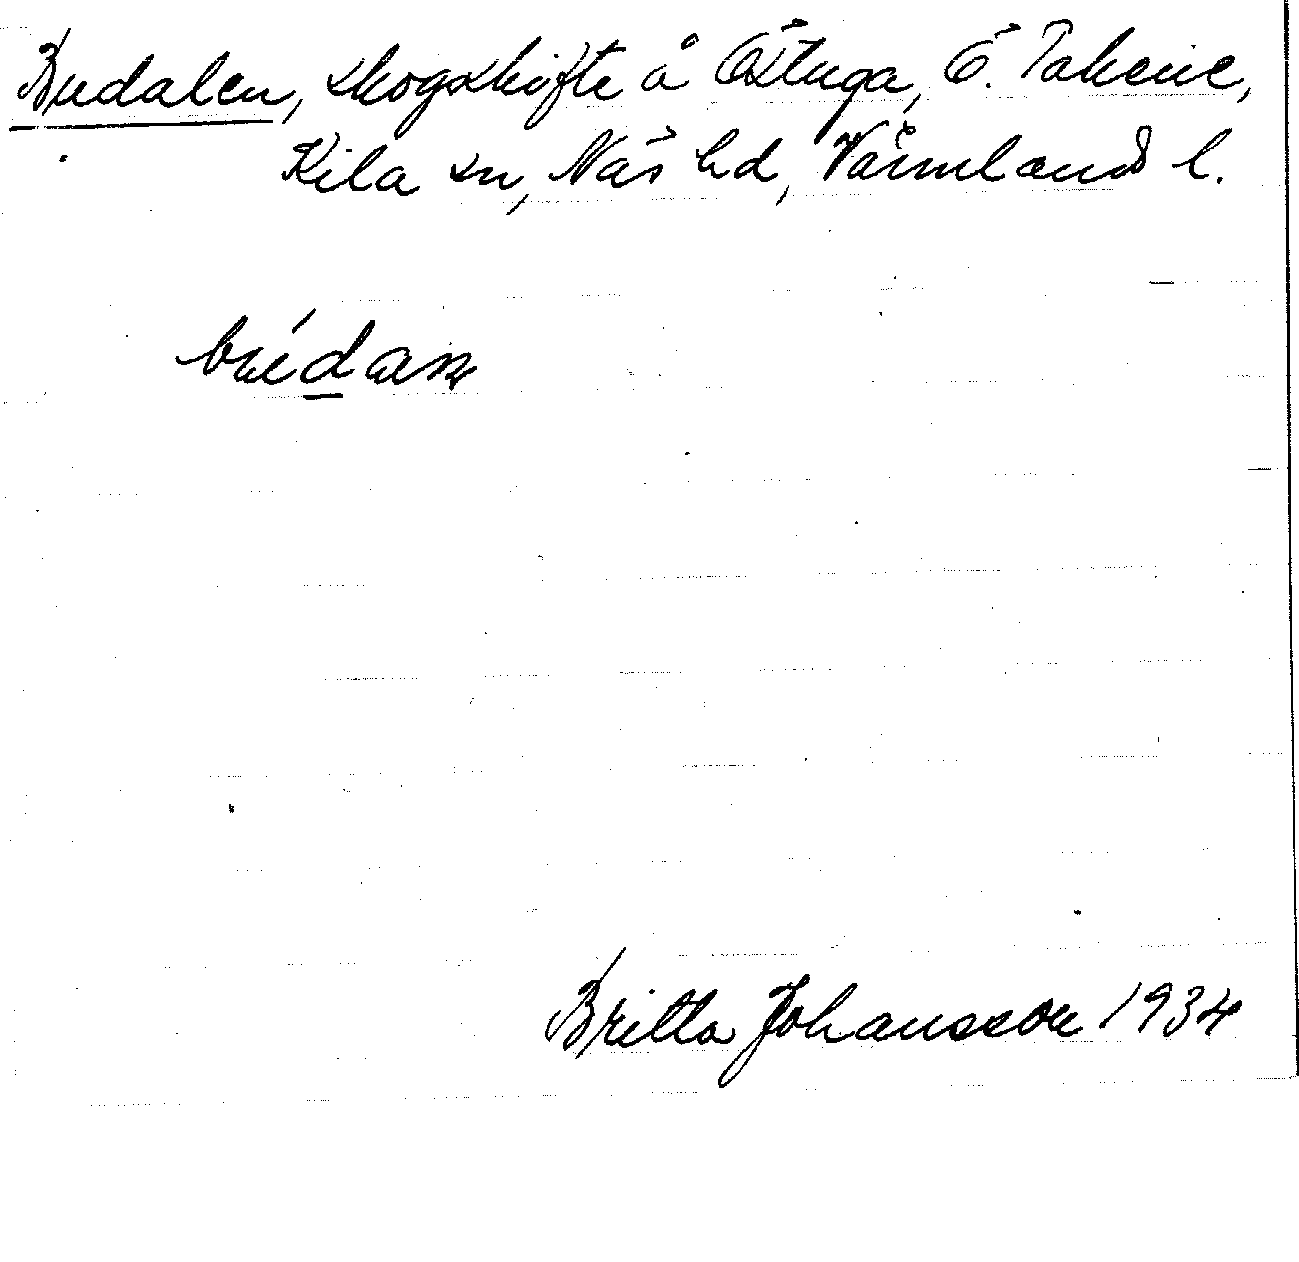 Budalen, skogskifte å Östuga, Ö. Takene,
Kila sn, Näs hd, Värmlands l.
Britta Johansson 1934